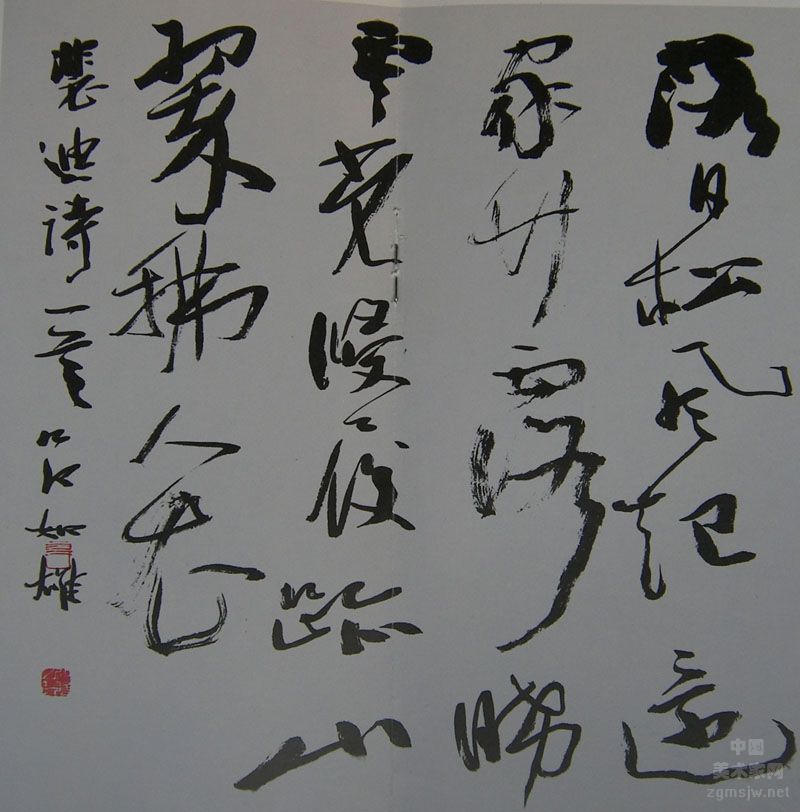 落日松风起還
家草露晞
雲光侵履跡山
翠拂人衣
裴迪诗一首 吕如雄
中国
美术家网
zgmsjw.net